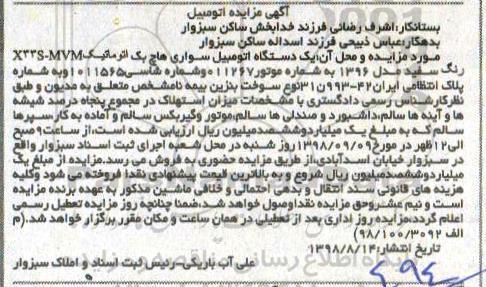 آگهی مزایده اتومبیل
بستانکار:اشرف رضائی فرزند خدابخش ساکن سبزوار
بدهکار:عباس ذبیحی فرزند اسداله ساکن سبزوار
مورد مزایده و محل آن:یک دستگاه اتومبیل سواری هاچ بک اتوماتیک X۳۳S-MVM
رنگ سفید مدل ۱۳۹۶ به شماره موتور۰۱۱۲۶۷ وشماره شاسی۱۰۱۱۵۶۵ وبه شماره
پلاک انتظامی ایران۴۲-۹۹۳ن۳۱نوع سوخت بنزین بیمه نامشخص متعلق به مدیون و طبق
نظرکارشناس رسمی دادگستری با مشخصات میزان استهلاک در مجموع پنجاه درصد شیشه
ها و آینه ها سالم،داشبورد و صندلی ها سالم،موتور وگیربکس سالم و آماده به کار،سپرها
سالم که به مبلغ یک میلیاردوششصدمیلیون ریال ارزیابی شده است،از ساعت۹صبح
الی۱۲ظهر در مورخ۱۳۹۸/۰۹/۰۹روز شنبه در محل شعبه اجرای ثبت اسناد سبزوار واقع
در سبزوار خیابان اسدآبادی،از طریق مزایده حضوری به فروش می رسد.مزایده از مبلغ یک
میلیاردوششصدمیلیون ریال شروع و به بالاترین قیمت پیشنهادی نقدا فروخته می شود وکلیه
هزینه های قانونی سند انتقال و بدهی احتمالی و خلافی ماشین مذکور به عهده برنده مزایده
است و نیم عشروحق مزایده نقداوصول خواهد شد،ضمنا چنانچه روز مزایده تعطیل رسمی
اعلام گردد،مزایده روز اداری بعد از تعطیلی در همان ساعت و مکان مقرر برگزار خواهد شد.(م
الف ۹۸/۱۰۰/۳۰۹۲)
تاریخ انتشار:۱۳۹۸/۸/۱۴
علی آب باریکی-رئیس ثبت اسناد و املاک سبزوار